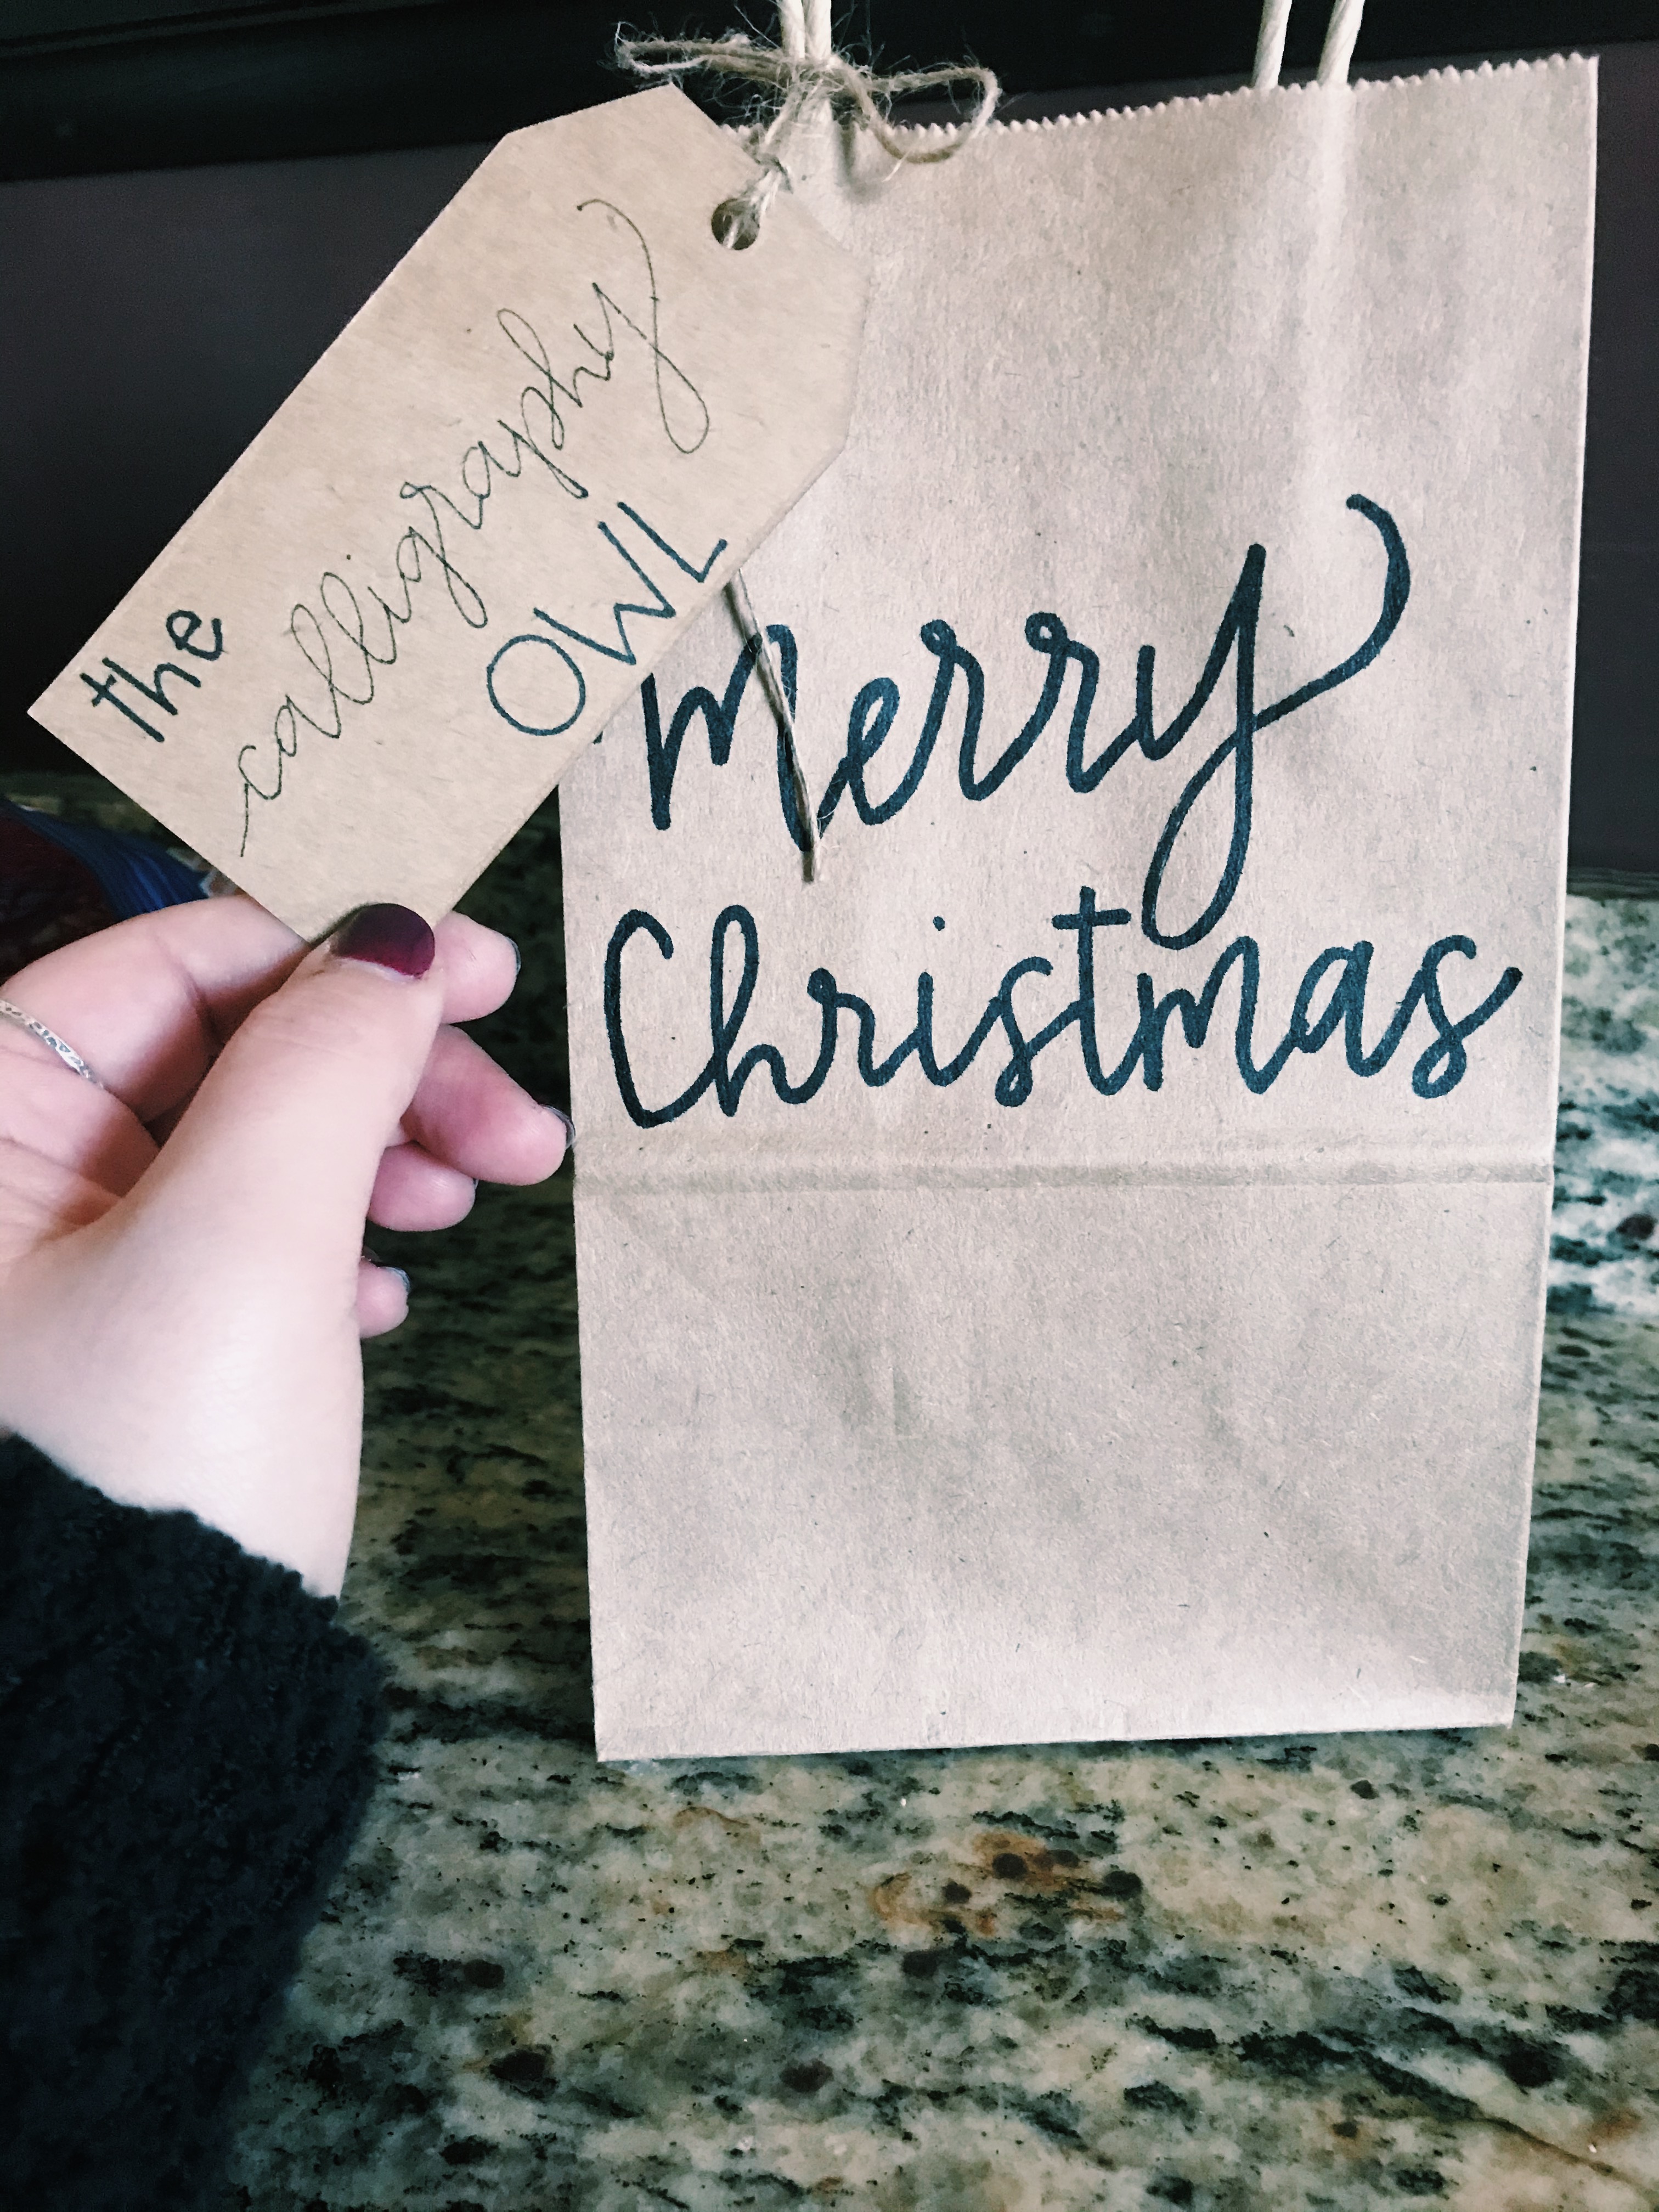 the
calligraphy
OWL
Merry
Christmas